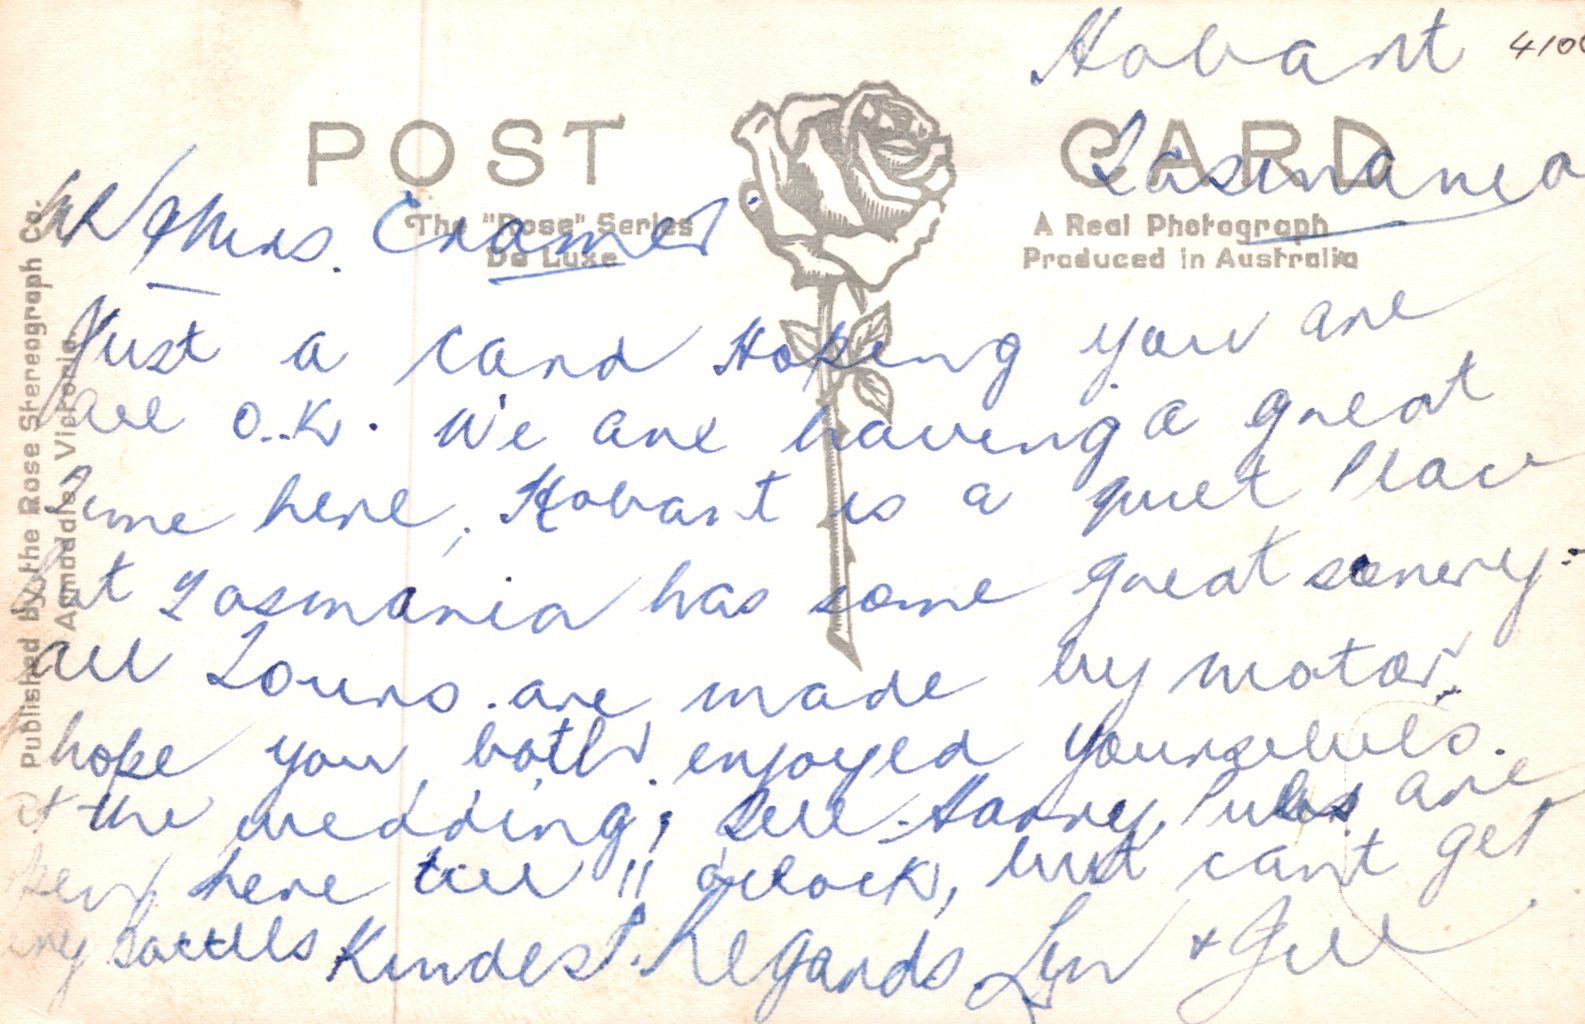 Hobart
Tasmania
POST CARD
The "Rose" Series
De Luxe
A Real Photograph
Produced in Australia
Published by the Rose Stereograph Co.
Armadale, Victoria.
Mr & Mrs. Cramer
Just a card Hoping you are
all O.K. We are having a great
Time here, Hobart is a quiet Place
but Tasmania has some great scenery
all Tours are made by motor,
hope you both enjoyed yourselves.
at the wedding, Tell Harry, Pubs are
open here till 11 o'clock, but can't get
any bottles Kindest Regards Lyn & Jill